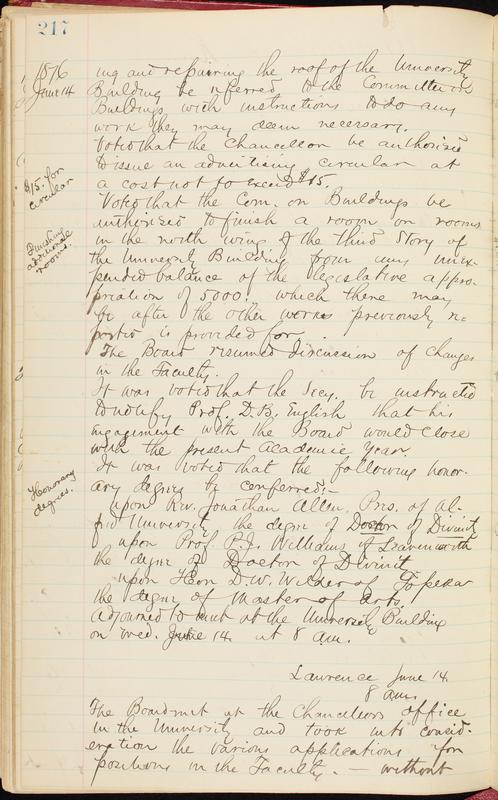 217
1876
June 14
ing and repairing the roof of the University
Building be referred to the Committee on
Buildings with instructions to do any
work they may deem necessary.
Voted that the Chancellor be authorised
to issue an advertising circular at
a cost not to exceed $15.
$15. for
circular
Voted that the Com. on Buildings be
authorised to finish a room or rooms
in the north wing of the third Story of
the University Building from any unex-
pended balance of the legislative appro-
priation of 5000. which there may
be after the other works previously re-
ported is provided for.
Finishing
additional
rooms.
The Board resumed discussion of changes
in the Faculty.
It was voted that the Secy. be instructed
to notify Prof. D.B. English that his
engagement with the Board would close
with the present Academic Year.
It was voted that the following honor-
ary degrees be conferred:-
Honorary
degrees.
upon Rev. Jonathan Allen, Pres. of Al-
fred University the degree of Doctor of Divinity
upon Prof. P.J. Williams of Leavenworth
the degree of Doctor of Divinity
upon Hon D.W. Wilder of Topeka
the degree of Master of Arts.
Adjourned to meet at the University Building
on Wed. June 14 at 8 a.m.
Lawrence June 14
8 a.m.
The Board met at the Chancellors office
in the University and took into consid-
eration the various applications for
positions in the Faculty. - without